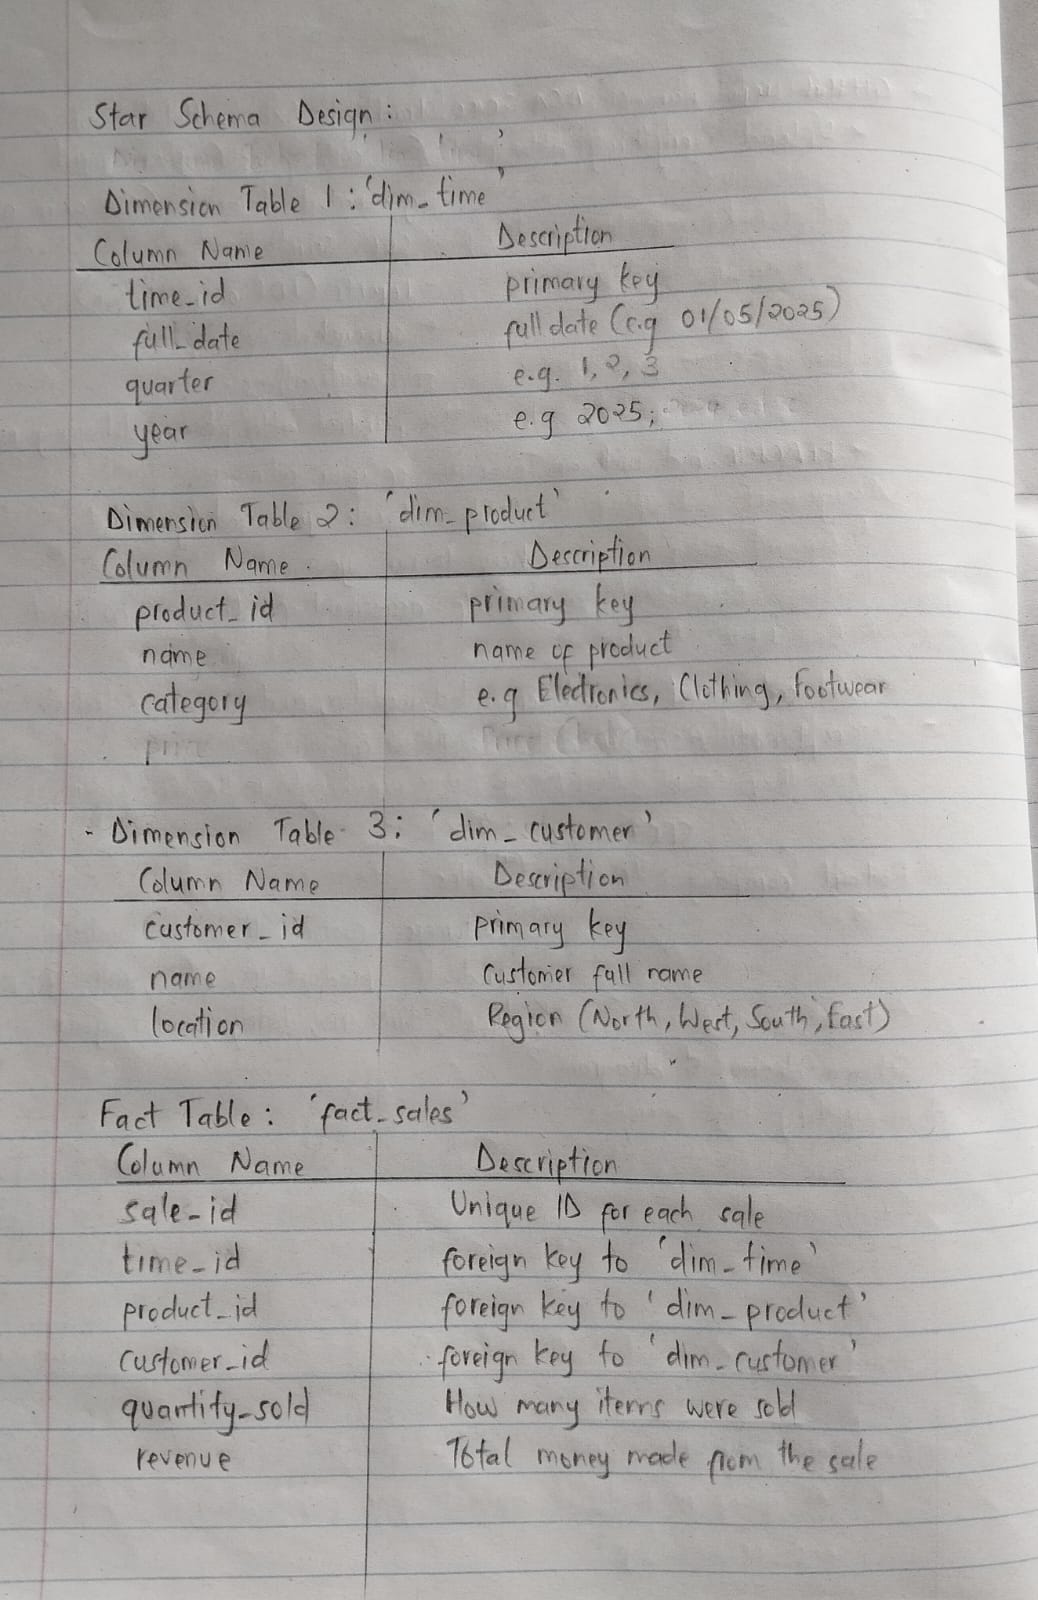 Star Schema Design :
Dimension Table 1 : 'dim_time'
Column Name Description
time_id primary key
full_date full date (e.g 01/05/2025)
quarter e.g. 1, 2, 3
year e.g 2025;
Dimension Table 2 : 'dim_product'
Column Name Description
product_id primary key
name name of product
category e.g Electronics, Clothing, Footwear
- Dimension Table 3 : 'dim_customer'
Column Name Description
customer_id primary key
name Customer full name
location Region (North, West, South, East)
Fact Table : 'fact_sales'
Column Name Description
sale_id Unique ID for each sale
time_id foreign key to 'dim_time'
product_id foreign key to 'dim_product'
customer_id foreign key to 'dim_customer'
quantity_sold How many items were sold
revenue Total money made from the sale